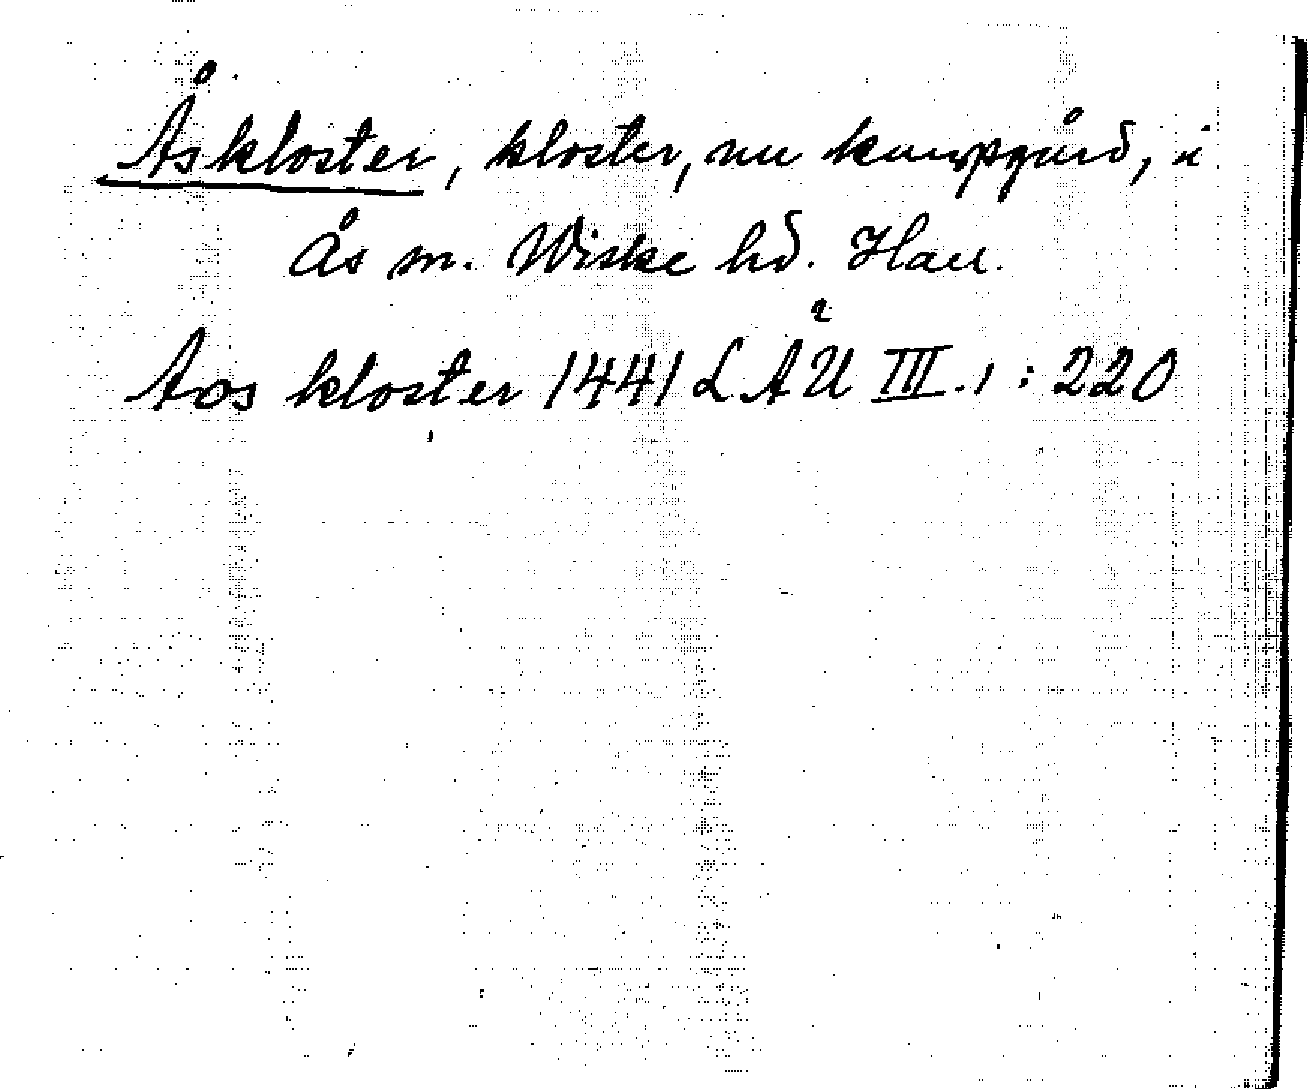 Åskloster, kloster, nu kungsgård, i
Ås sn. Wiske hd. Hall.
Aos kloster 1441 LÄU III.1:220